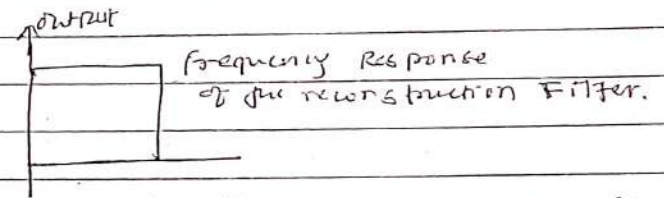 output
frequency Response
of the reconstruction Filter.